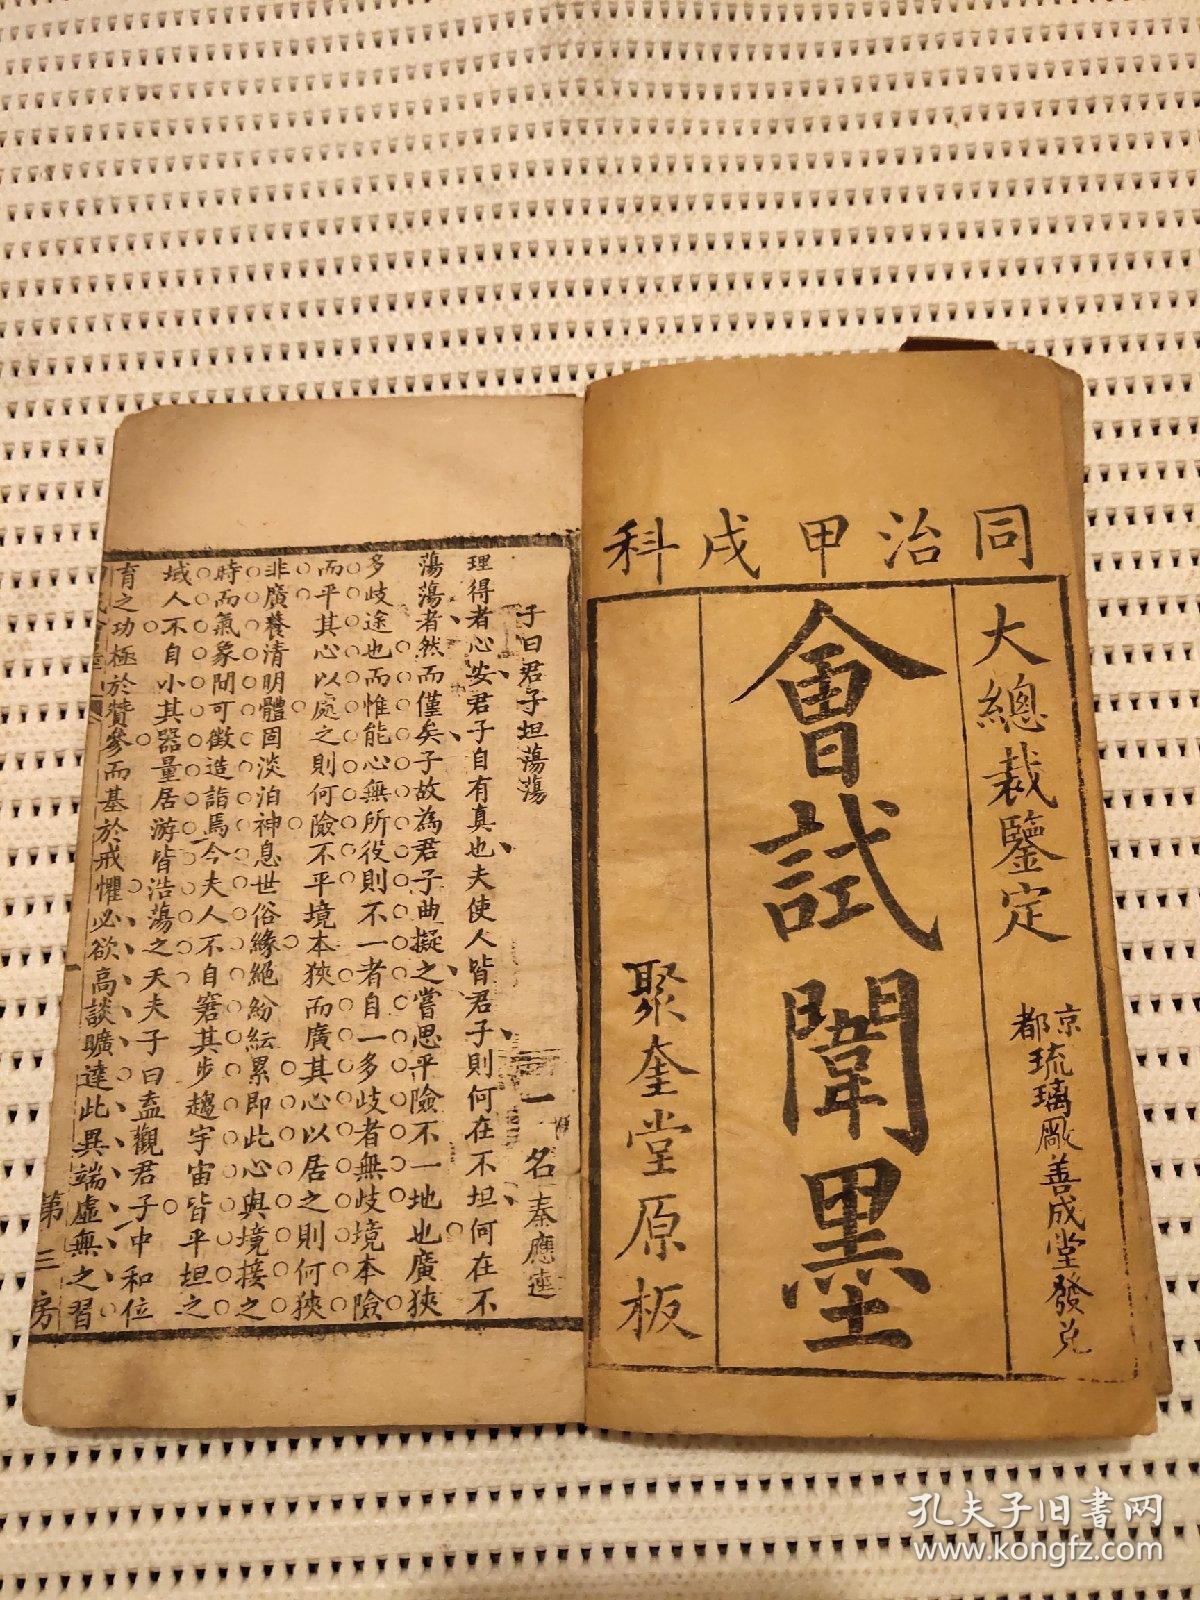 同治甲戌科
大總裁鑒定
京都琉璃厰善成堂發兌
會試闈墨
聚奎堂原板
子曰君子坦蕩蕩
一名秦應逵
理得者心安君子自有真也夫使人皆君子則何在不坦何在不
蕩蕩者然而僅矣子故為君子曲擬之嘗思平險不一地也廣狹
多歧途也而惟能心無所役則不一者自一多歧者無歧境本險
而平其心以處之則何險不平境本狹而廣其心以居之則何狹
非廣養清明體固淡泊神息世俗緣絕紛紜累即此心與境接之
時而氣象間可徵造詣焉今夫人不自窘其步趨宇宙皆平坦之
域人不自小其器量居游皆浩蕩之天夫子曰盍觀君子中和位
育之功極於贊參而基於戒懼必欲高談曠達此異端虛無之習
一
第三房
孔夫子旧書网
www.kongfz.com